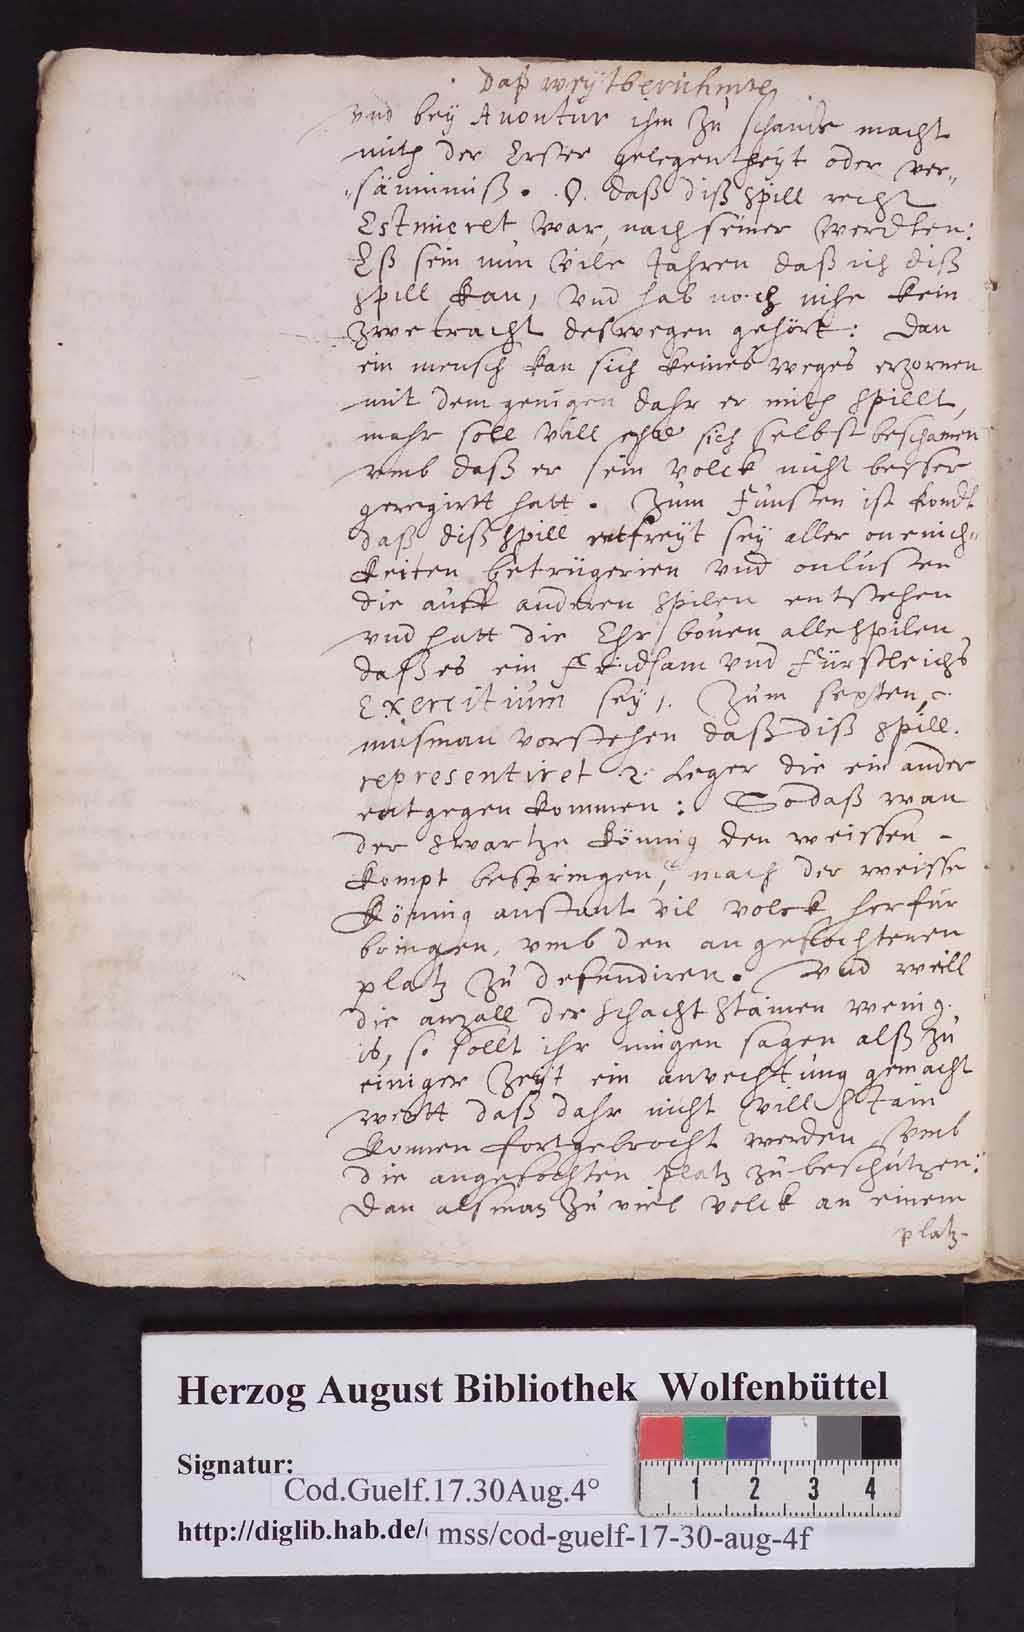 Daß weytberühmte
vnd bey Auontur ihm zu schande macht
mith der Erster gelegentheyt oder ver„
„säumniß. O. daß diß spill recht
Estmieret war, nach seiner werdten:
Eß sein nun vile Jahren daß ich diß
spill kan, vnd hab noch nihe kein
zwetracht deswegen gehört: Dan
ein mensch kan sich keines weges erzornen
mit dem genigen dahr er mith spillt,
mahr soll vill ehe sich selbst beschamen
vmb daß er sein volck nicht besser
geregirtt hatt. Zum Funften ist kondt
daß diß spill entfreyt sey aller onenich„
keiten betrügerien vnd onlusten
die auß anderen spilen entstehen
vnd hatt die Ehr bouen alle spilen
daß es ein Fridsam vnd Fürstleichs
Exercitium sey. Zum sexten,
musman vorstehen daß diß spill.
representiret 2. Leger die ein ander
entgegen kommen: Sodaß wan
der swartze könnig den weissen
kompt bespringen, mach der weisse
könnig anstunt vil volck herfür
bringen, vmb den angefochtenen
platz zu defendiren. vnd weill
die anzall der schacht stainen wenig.
is, so sollt ihr mugen sagen alß zu
einiger zeyt ein anvechtung gemacht
wertt daß dahr nicht vill stain
konnen fortgebrocht werden vmb
die angefochten platz zu beschutzen:
Dan alsman zu viel volck an einem
platz-
Herzog August Bibliothek Wolfenbüttel
Signatur:
Cod.Guelf.17.30Aug.4°
http://diglib.hab.de/ mss/cod-guelf-17-30-aug-4f
1 2 3 4